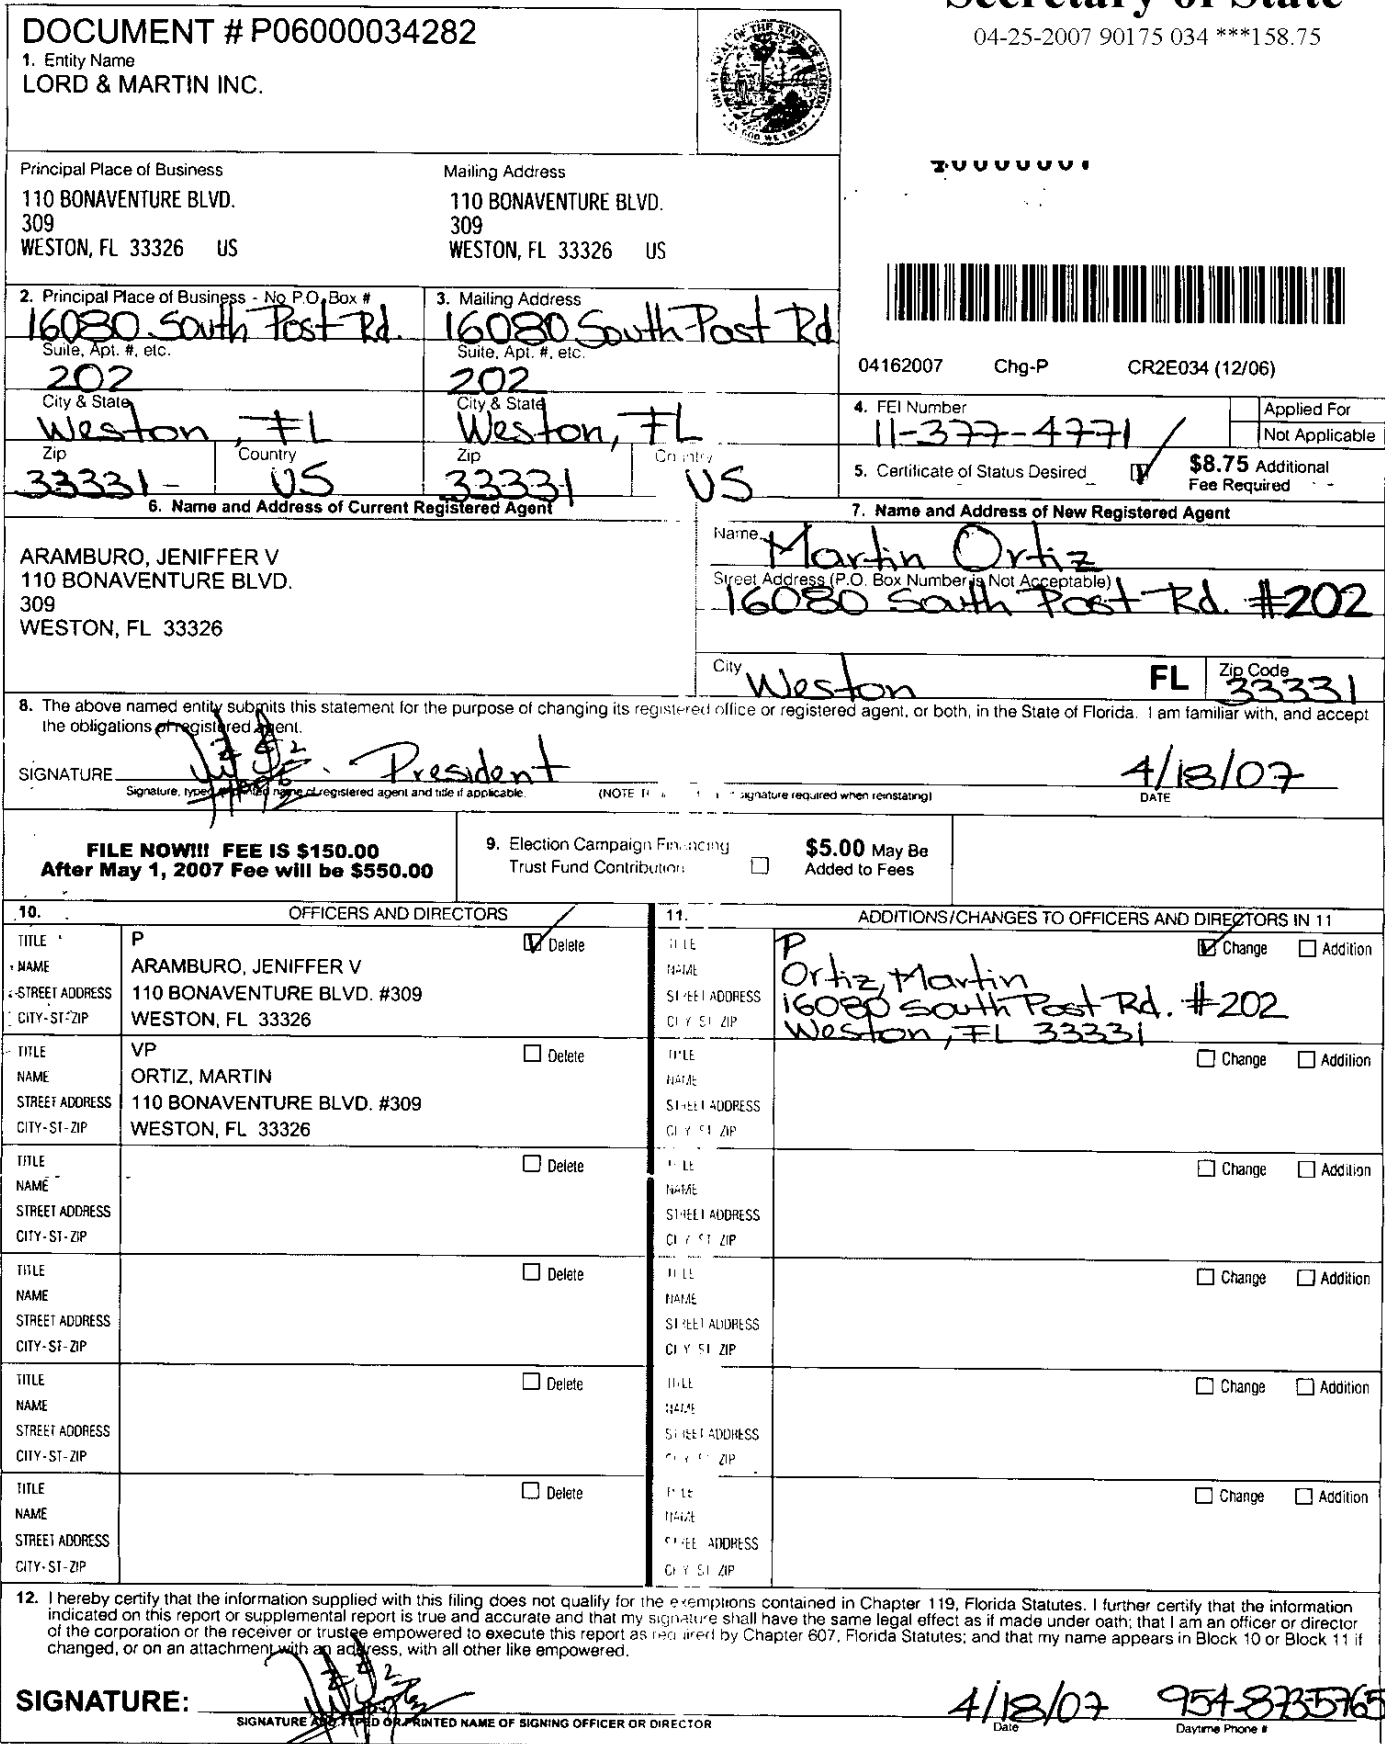 Secretary of State
DOCUMENT # P06000034282
04-25-2007 90175 034 ***158.75
1. Entity Name
LORD & MARTIN INC.
Principal Place of Business
Mailing Address
110 BONAVENTURE BLVD.
309
WESTON, FL 33326 US
110 BONAVENTURE BLVD.
309
WESTON, FL 33326 US
2. Principal Place of Business - No P.O. Box #
16080 South Post Rd.
Suite, Apt. #, etc.
202
City & State
Weston, FL
Zip
33331-
Country
US
3. Mailing Address
16080 South Post Rd
Suite, Apt. #, etc.
202
City & State
Weston, FL
Zip
33331
Country
US
04162007 Chg-P CR2E034 (12/06)
4. FEI Number
11-377-4771
Applied For
Not Applicable
5. Certificate of Status Desired
$8.75 Additional
Fee Required
6. Name and Address of Current Registered Agent
ARAMBURO, JENIFFER V
110 BONAVENTURE BLVD.
309
WESTON, FL 33326
7. Name and Address of New Registered Agent
Name
Martin Ortiz
Street Address (P.O. Box Number is Not Acceptable)
16080 South Post Rd. #202
City
Weston
FL
Zip Code
33331
8. The above named entity submits this statement for the purpose of changing its registered office or registered agent, or both, in the State of Florida. I am familiar with, and accept
the obligations of registered agent.
SIGNATURE
President
4/18/07
Signature, typed or printed name of registered agent and title if applicable.
(NOTE signature required when reinstating)
DATE
FILE NOW!!! FEE IS $150.00
After May 1, 2007 Fee will be $550.00
9. Election Campaign Financing
Trust Fund Contribution
$5.00 May Be
Added to Fees
10. OFFICERS AND DIRECTORS
11. ADDITIONS/CHANGES TO OFFICERS AND DIRECTORS IN 11
TITLE P Delete
NAME ARAMBURO, JENIFFER V
STREET ADDRESS 110 BONAVENTURE BLVD. #309
CITY-ST-ZIP WESTON, FL 33326
TITLE P Change Addition
NAME Ortiz, Martin
STREET ADDRESS 16080 South Post Rd. #202
CITY ST ZIP Weston, FL 33331
TITLE VP Delete
NAME ORTIZ, MARTIN
STREET ADDRESS 110 BONAVENTURE BLVD. #309
CITY-ST-ZIP WESTON, FL 33326
TITLE Change Addition
NAME
STREET ADDRESS
CITY ST ZIP
TITLE Delete
NAME
STREET ADDRESS
CITY-ST-ZIP
TITLE Change Addition
NAME
STREET ADDRESS
CITY ST ZIP
TITLE Delete
NAME
STREET ADDRESS
CITY-ST-ZIP
TITLE Change Addition
NAME
STREET ADDRESS
CITY ST ZIP
TITLE Delete
NAME
STREET ADDRESS
CITY-ST-ZIP
TITLE Change Addition
NAME
STREET ADDRESS
ZIP
TITLE Delete
NAME
STREET ADDRESS
CITY-ST-ZIP
TITLE Change Addition
NAME
STREET ADDRESS
CITY ST ZIP
12. I hereby certify that the information supplied with this filing does not qualify for the exemptions contained in Chapter 119, Florida Statutes. I further certify that the information
indicated on this report or supplemental report is true and accurate and that my signature shall have the same legal effect as if made under oath; that I am an officer or director
of the corporation or the receiver or trustee empowered to execute this report as required by Chapter 607, Florida Statutes; and that my name appears in Block 10 or Block 11 if
changed, or on an attachment with an address, with all other like empowered.
SIGNATURE:
4/18/07
954-873-5765
SIGNATURE AND TYPED OR PRINTED NAME OF SIGNING OFFICER OR DIRECTOR
Date
Daytime Phone #